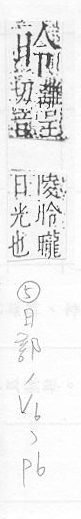 昤
離呈
切音
陵昤曨
日光也
⑤日部, V6, p6